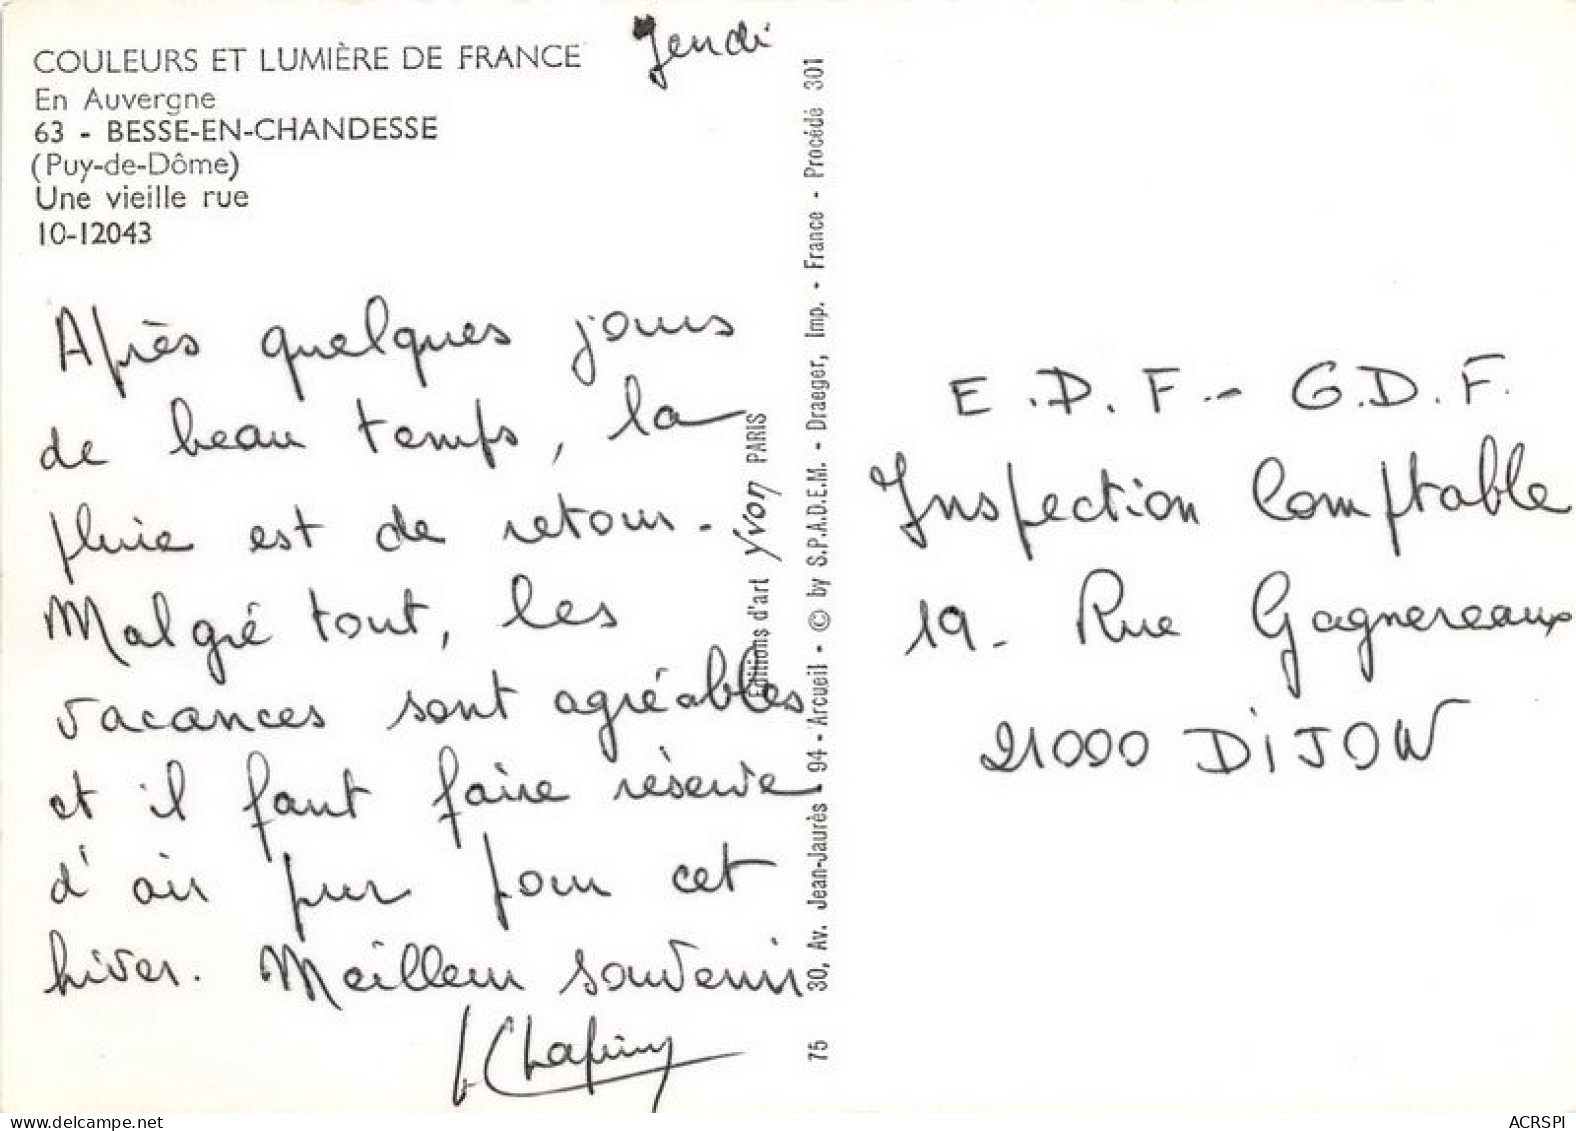 Jeudi
COULEURS ET LUMIÈRE DE FRANCE
En Auvergne
63 - BESSE-EN-CHANDESSE
(Puy-de-Dôme)
Une vieille rue
10-12043
Après quelques jours
de beau temps, la
pluie est de retour.
Malgré tout, les
vacances sont agréables
et il faut faire réserve
d'air pur pour cet
hiver. Meilleur souvenir
Editions d'art Yvon PARIS
75 30, Av. Jean-Jaurès - 94 - Arcueil - © by S.P.A.D.E.M. - Draeger, Imp. - France - Procédé 301
E.D.F.- G.D.F.
Inspection Comptable
19- Rue Gagnereaux
21000 DiJON
ACRSPI